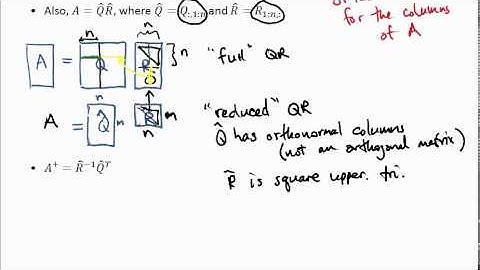 • Also, A = Q̂R̂, where Q̂ = Q:,1:n and R̂ = R1:n,:
for the columns
of A
n
n
A = Q R } n "full" QR
O
m
n
n
A = Q̂ m R̂ n "reduced" QR
n
n
Q̂ has orthonormal columns
(not an orthogonal matrix)
• A⁺ = R̂⁻¹Q̂ᵀ
R̂ is square upper. tri.